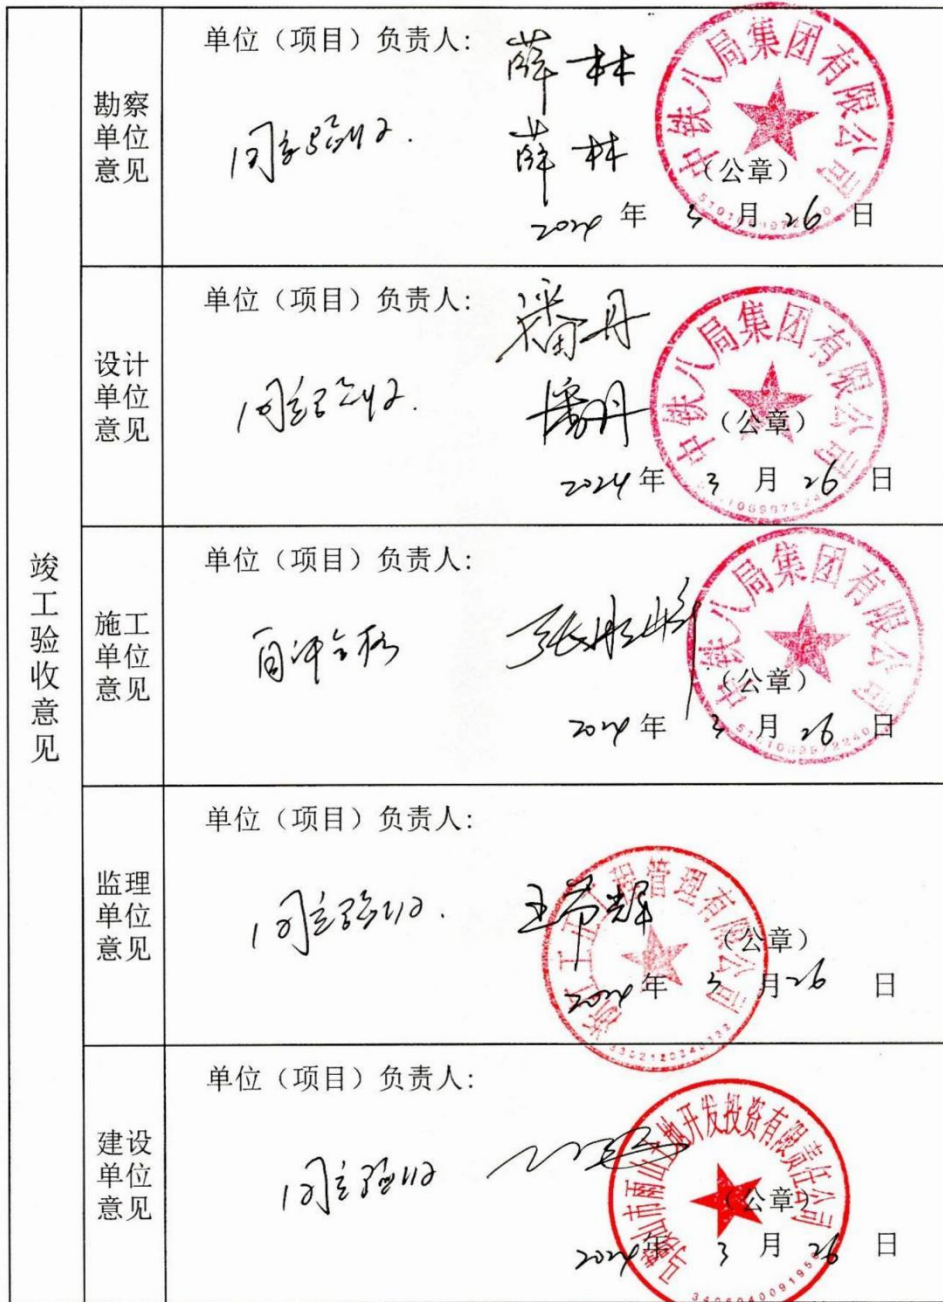 竣工验收意见
勘察单位意见
单位（项目）负责人：
薛林
同意验收.
薛林
中铁八局集团有限公司
（公章）
2024 年 3 月 26 日
设计单位意见
单位（项目）负责人：
潘丹
同意验收.
潘丹
中铁八局集团有限公司
（公章）
2024 年 3 月 26 日
施工单位意见
单位（项目）负责人：
自评合格
中铁八局集团有限公司
（公章）
2024 年 3 月 26 日
监理单位意见
单位（项目）负责人：
同意验收.
程管理有限公司
（公章）
2024 年 3 月 26 日
建设单位意见
单位（项目）负责人：
同意验收
马鞍山市雨山 开发投资有限责任公司
（公章）
2024 年 3 月 26 日